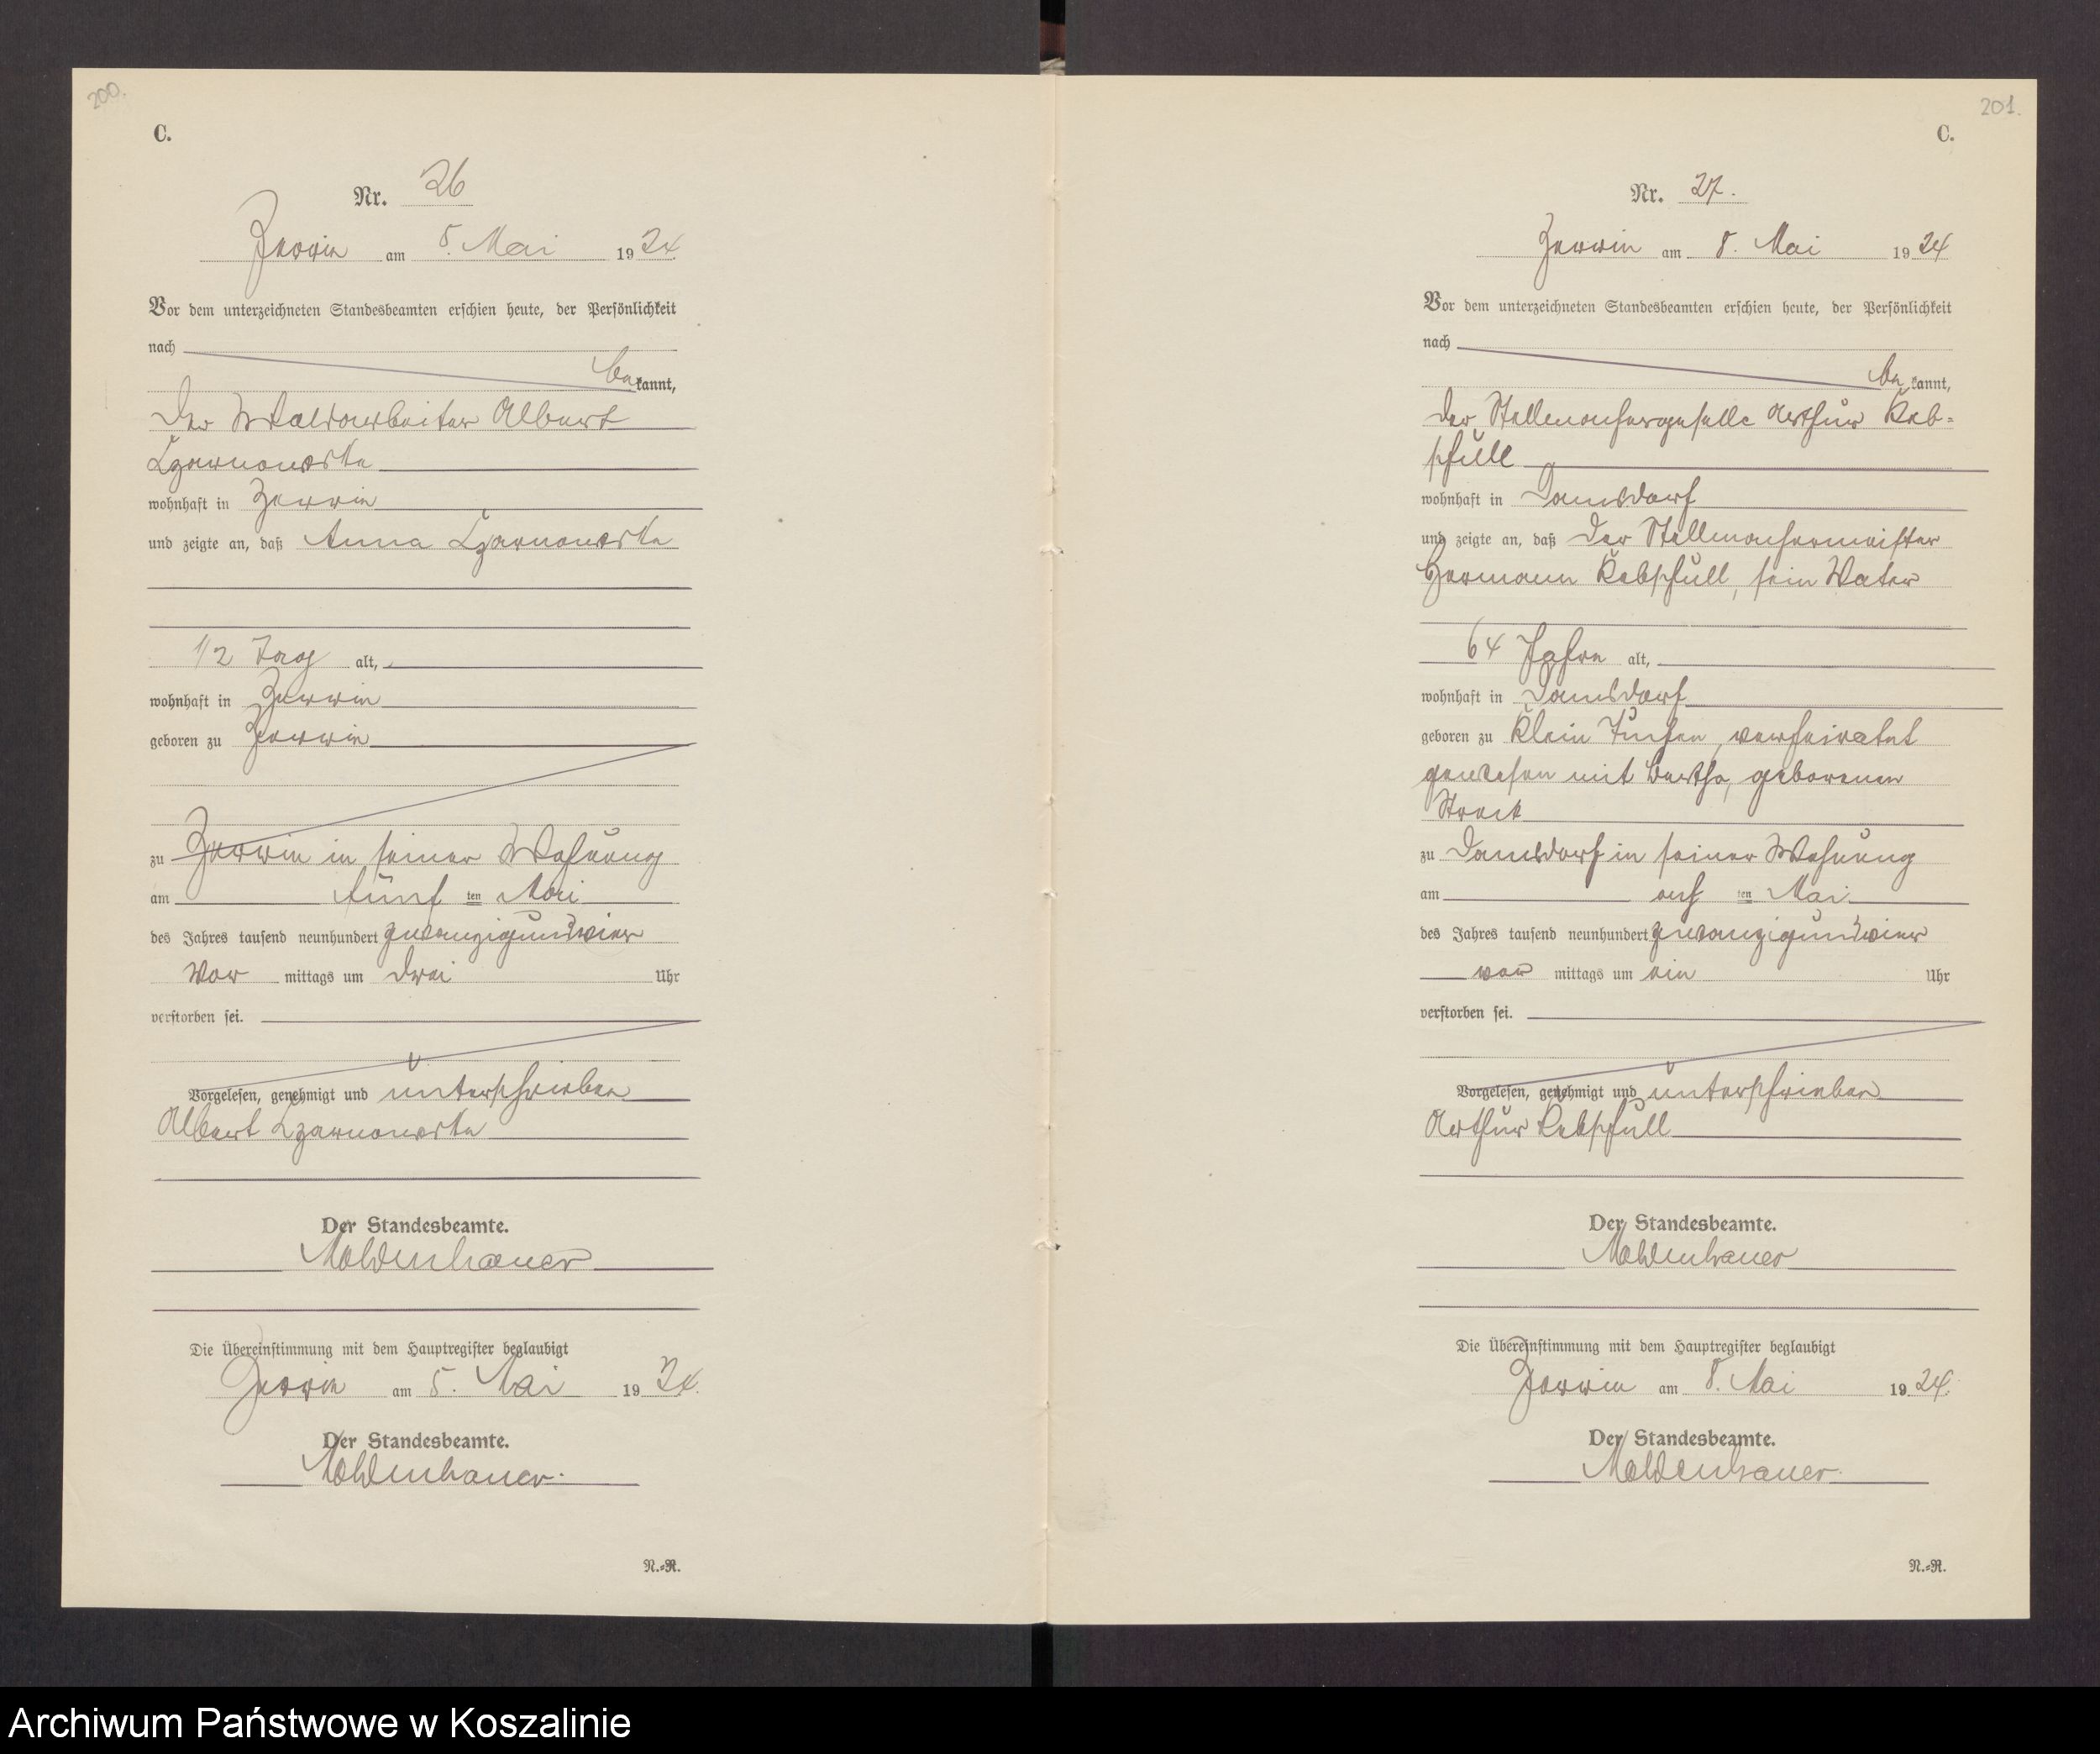 200.
C.
Nr. 26
Zerrin am 5. Mai 1924
Vor dem unterzeichneten Standesbeamten erschien heute, der Persönlichkeit
nach
be kannt,
der Waldarbeiter Albert
Czarnowske
wohnhaft in Zerrin
und zeigte an, daß Anna Czarnowske
1/2 Tag alt,
wohnhaft in Zerrin
geboren zu Zerrin
zu Zerrin in seiner Wohnung
am fünf ten Mai
des Jahres tausend neunhundert zwanzigundvier
Vor mittags um drei Uhr
verstorben sei.
Vorgelesen, genehmigt und unterschrieben
Albert Czarnowske
Der Standesbeamte.
Moldenhauer
Die Übereinstimmung mit dem Hauptregister beglaubigt
Zerrin am 5. Mai 1924.
Der Standesbeamte.
Moldenhauer.
N.=R.
201.
C.
Nr. 27.
Zerrin am 8. Mai 1924
Vor dem unterzeichneten Standesbeamten erschien heute, der Persönlichkeit
nach
be kannt,
der Stellmachergeselle Arthur Reb=
pfull
wohnhaft in Damsdorf
und zeigte an, daß der Stellmachermeister
Hermann Rebpfull, sein Vater
64 Jahre alt,
wohnhaft in Damsdorf
geboren zu Klein Tuchen, verheiratet
gewesen mit Bertha, geborenen
zu Damsdorf in seiner Wohnung
am acht ten Mai
des Jahres tausend neunhundert zwanzigundvier
vor mittags um ein Uhr
verstorben sei.
Vorgelesen, genehmigt und unterschrieben
Arthur Rebpfull
Der Standesbeamte.
Moldenhauer
Die Übereinstimmung mit dem Hauptregister beglaubigt
Zerrin am 8. Mai 1924.
Der Standesbeamte.
Moldenhauer.
N.=R.
Archiwum Państwowe w Koszalinie